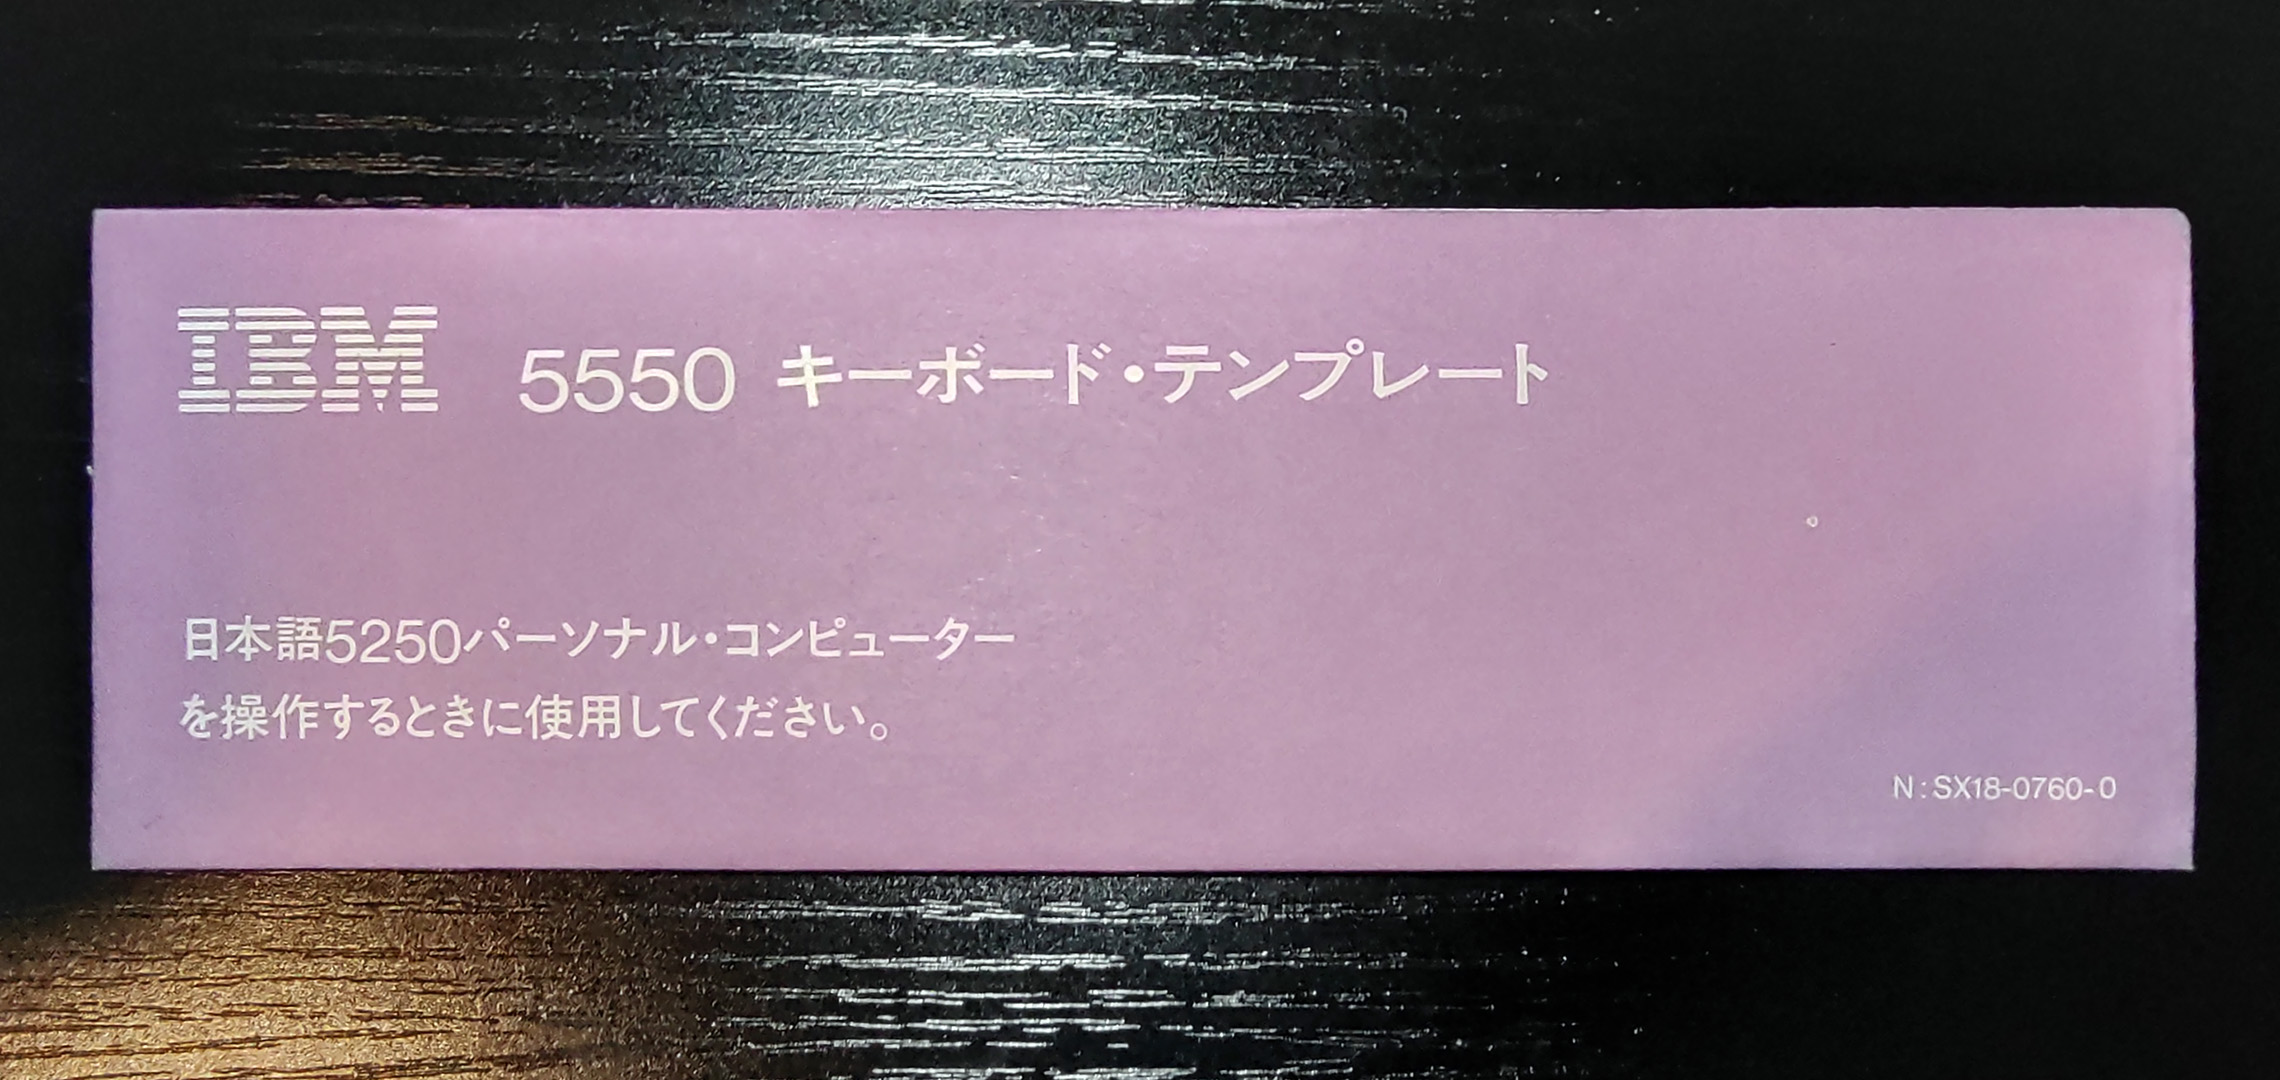 IBM 5550 キーボード・テンプレート
日本語5250パーソナル・コンピューター
を操作するときに使用してください。
N:SX18-0760-0